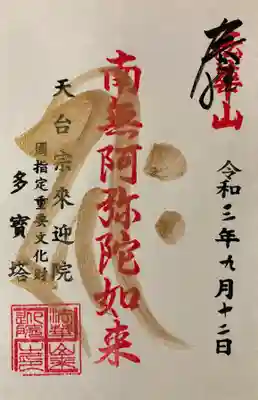 山
令和三年九月十二日
南無阿弥陀如来
天台宗來迎院
國指定重要文化財
多寳塔